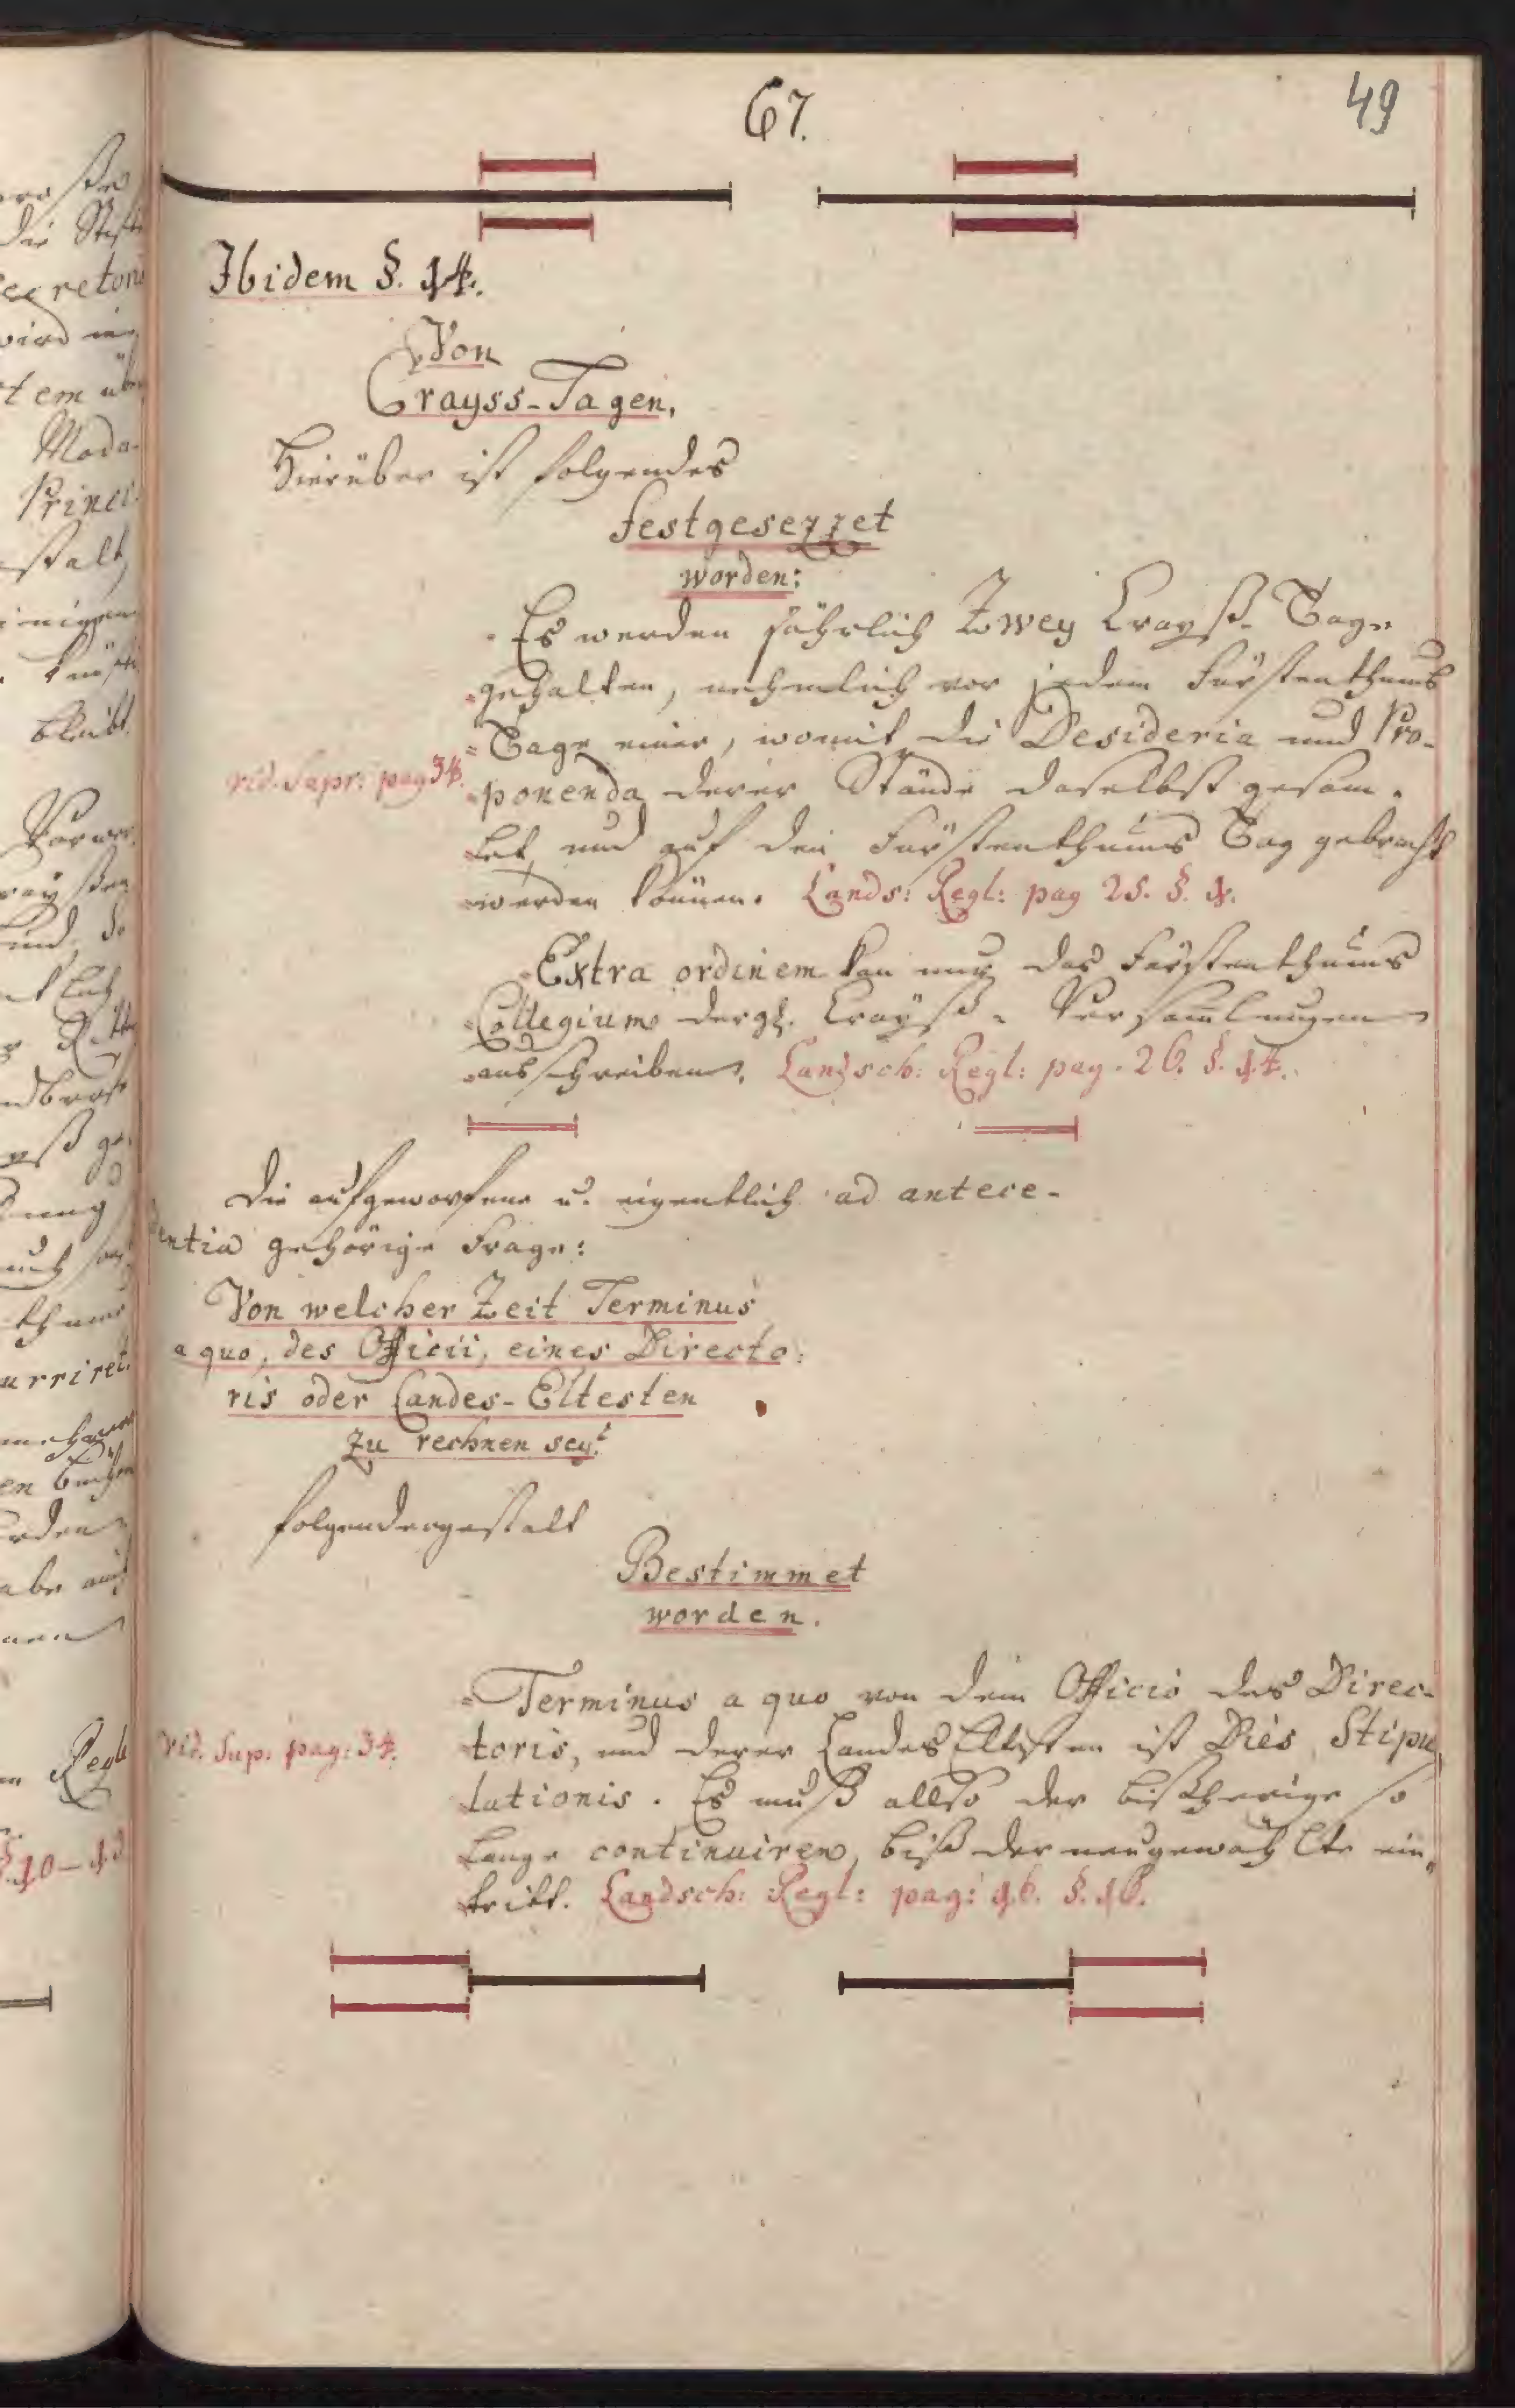 67.
49
Ibidem §. 14.
Von
Crayss-Tagen.
Hierüber ist folgendes
festgesezzet
worden:
Es werden jährlich Zwey Crayß-Tage
gehalten, nehmlich vor jedem Fürstenthums
Tage einer, womit die Desideria und Pro-
vid. Supr: pag 34.
ponenda derer Stände daselbst gesam-
let und auf den Fürstenthums Tag gebracht
werden können. Lands: Regl: pag 25. §. 1.
Extra ordinem kan nur das Fürstenthums
Collegium dergl. Crayß-Versam̄lungen
ausschreiben. Landsch: Regl: pag. 26. §. 14.
Die aufgeworfene u. eigentlich ad antece-
dentia gehörige Frage:
Von welcher Zeit Terminus
a quo, des Officii, eines Directo:
ris oder Landes-Eltesten
zu rechnen sey?
folgendergestalt
Bestimmet
worden.
Terminus a quo von dem Officio des Direc-
vid. Sup. pag: 34.
toris, und derer Landes Eltesten ist Dies Stipu
lationis. Es muß allso der bißherige so
lange continuiren, biß der neugewählte ein-
tritt. Landsch: Regl: pag: 16. §. 16.